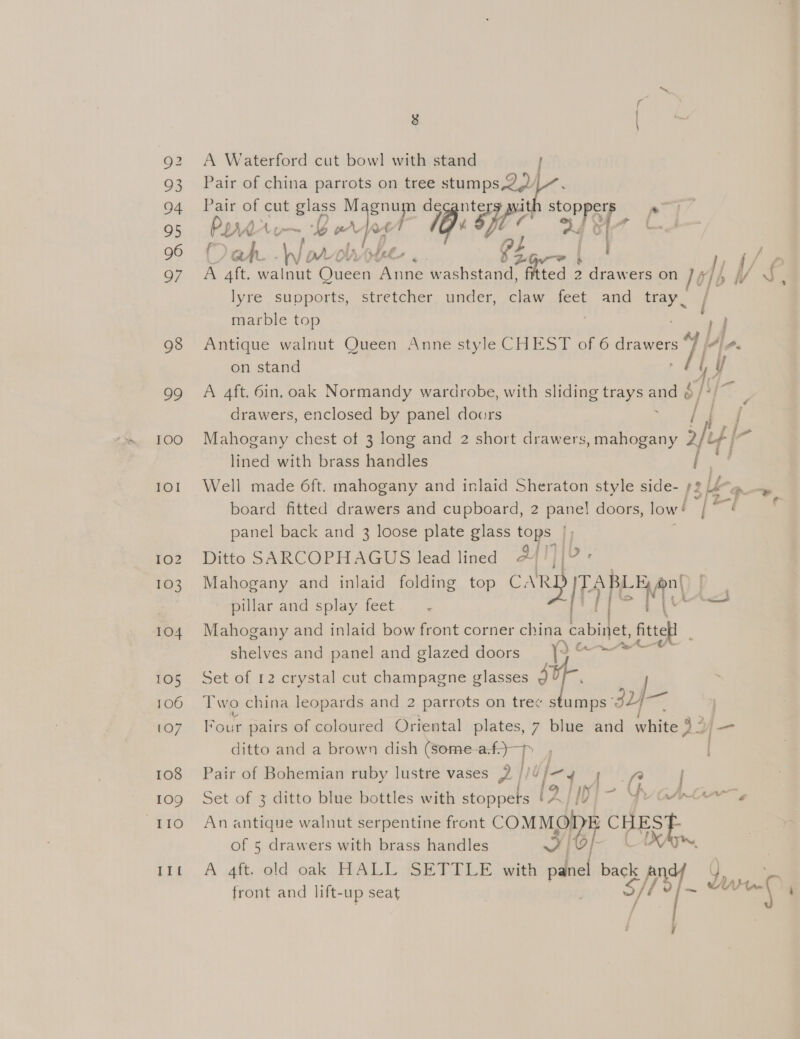 8
92 A Waterford cut bowl with stand
93 Pair of china parrots on tree stumps 22/-.
94 Pair of cut glass Magnum decanters with stoppers
95 Persian Carpet
96 Oak Wardrobe
97 A 4ft. walnut Queen Anne washstand, fitted 2 drawers on
lyre supports, stretcher under, claw feet and tray,
marble top
98 Antique walnut Queen Anne style CHEST of 6 drawers
on stand
99 A 4ft. 6in. oak Normandy wardrobe, with sliding trays and
drawers, enclosed by panel doors
100 Mahogany chest of 3 long and 2 short drawers, mahogany
lined with brass handles
101 Well made 6ft. mahogany and inlaid Sheraton style side-
board fitted drawers and cupboard, 2 panel doors, low
panel back and 3 loose plate glass tops
102 Ditto SARCOPHAGUS lead lined
103 Mahogany and inlaid folding top CARD TABLE, on
pillar and splay feet
104 Mahogany and inlaid bow front corner china cabinet, fitted
shelves and panel and glazed doors
105 Set of 12 crystal cut champagne glasses
106 Two china leopards and 2 parrots on tree stumps 32/-
107 Four pairs of coloured Oriental plates, 7 blue and white
ditto and a brown dish (some a.f.)
108 Pair of Bohemian ruby lustre vases
109 Set of 3 ditto blue bottles with stoppers
110 An antique walnut serpentine front COMMODE CHEST
of 5 drawers with brass handles
111 A 4ft. old oak HALL SETTLE with panel back and
front and lift-up seat